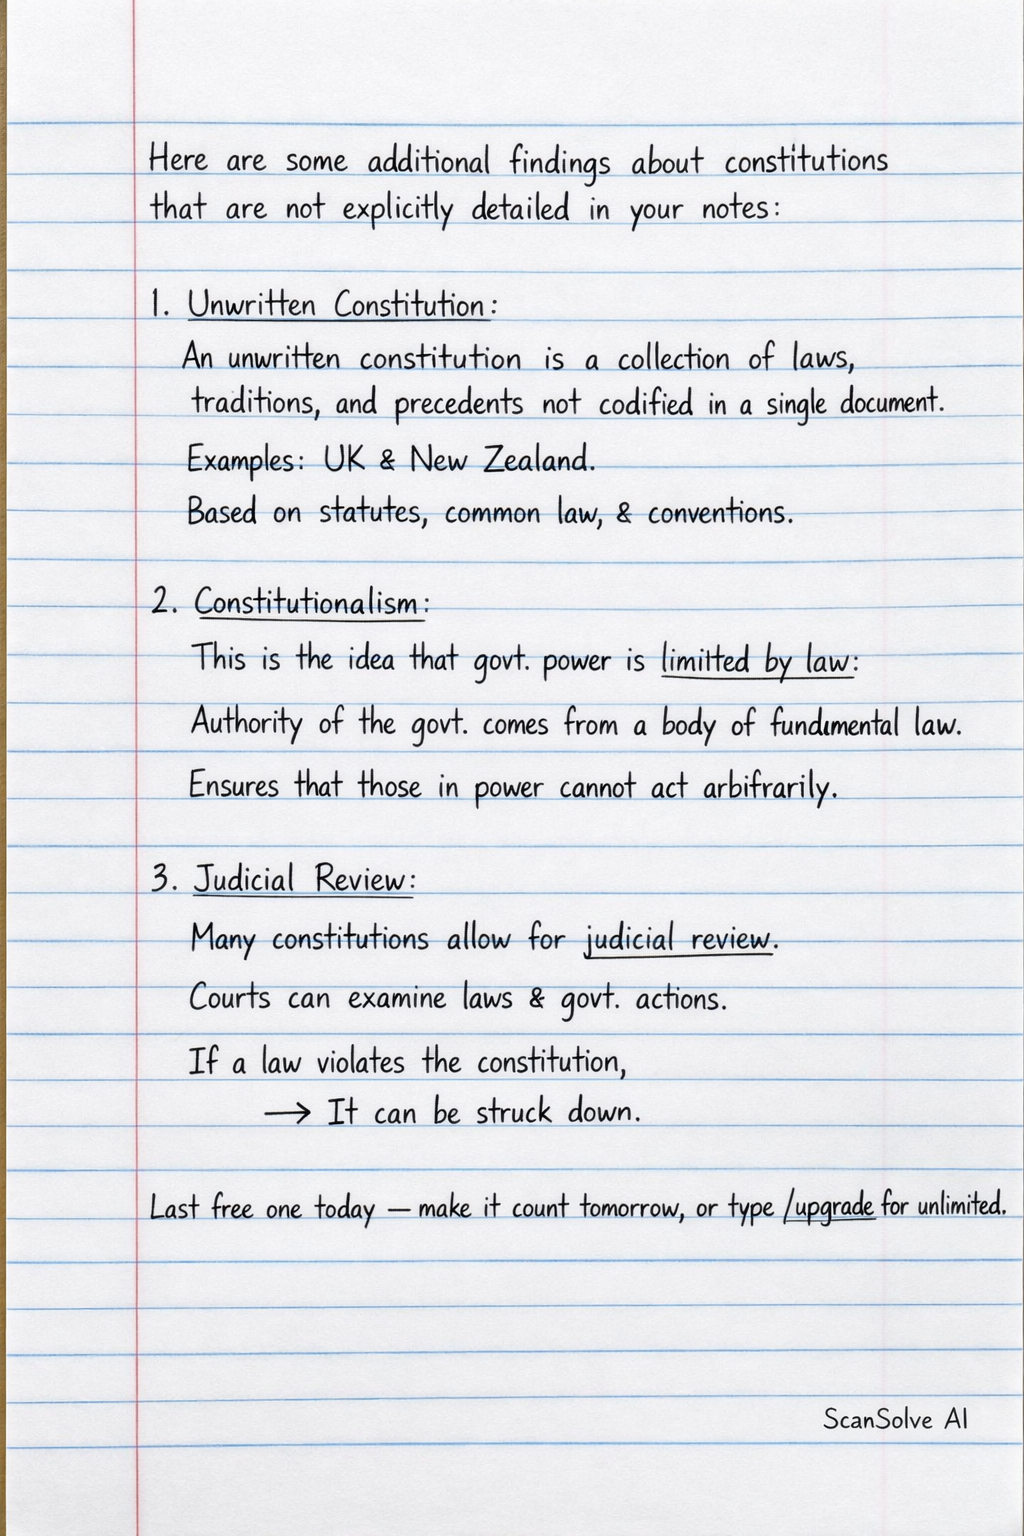 Here are some additional findings about constitutions
that are not explicitly detailed in your notes:
1. Unwritten Constitution:
An unwritten constitution is a collection of laws,
traditions, and precedents not codified in a single document.
Examples: UK & New Zealand.
Based on statutes, common law, & conventions.
2. Constitutionalism:
This is the idea that govt. power is limitted by law:
Authority of the govt. comes from a body of fundımental law.
Ensures that those in power cannot act arbifrarily.
3. Judicial Review:
Many constitutions allow for judicial review.
Courts can examine laws & govt. actions.
If a law violates the constitution,
→ It can be struck down.
Last free one today — make it count tomorrow, or type /upgrade for unlimited.
ScanSolve AI